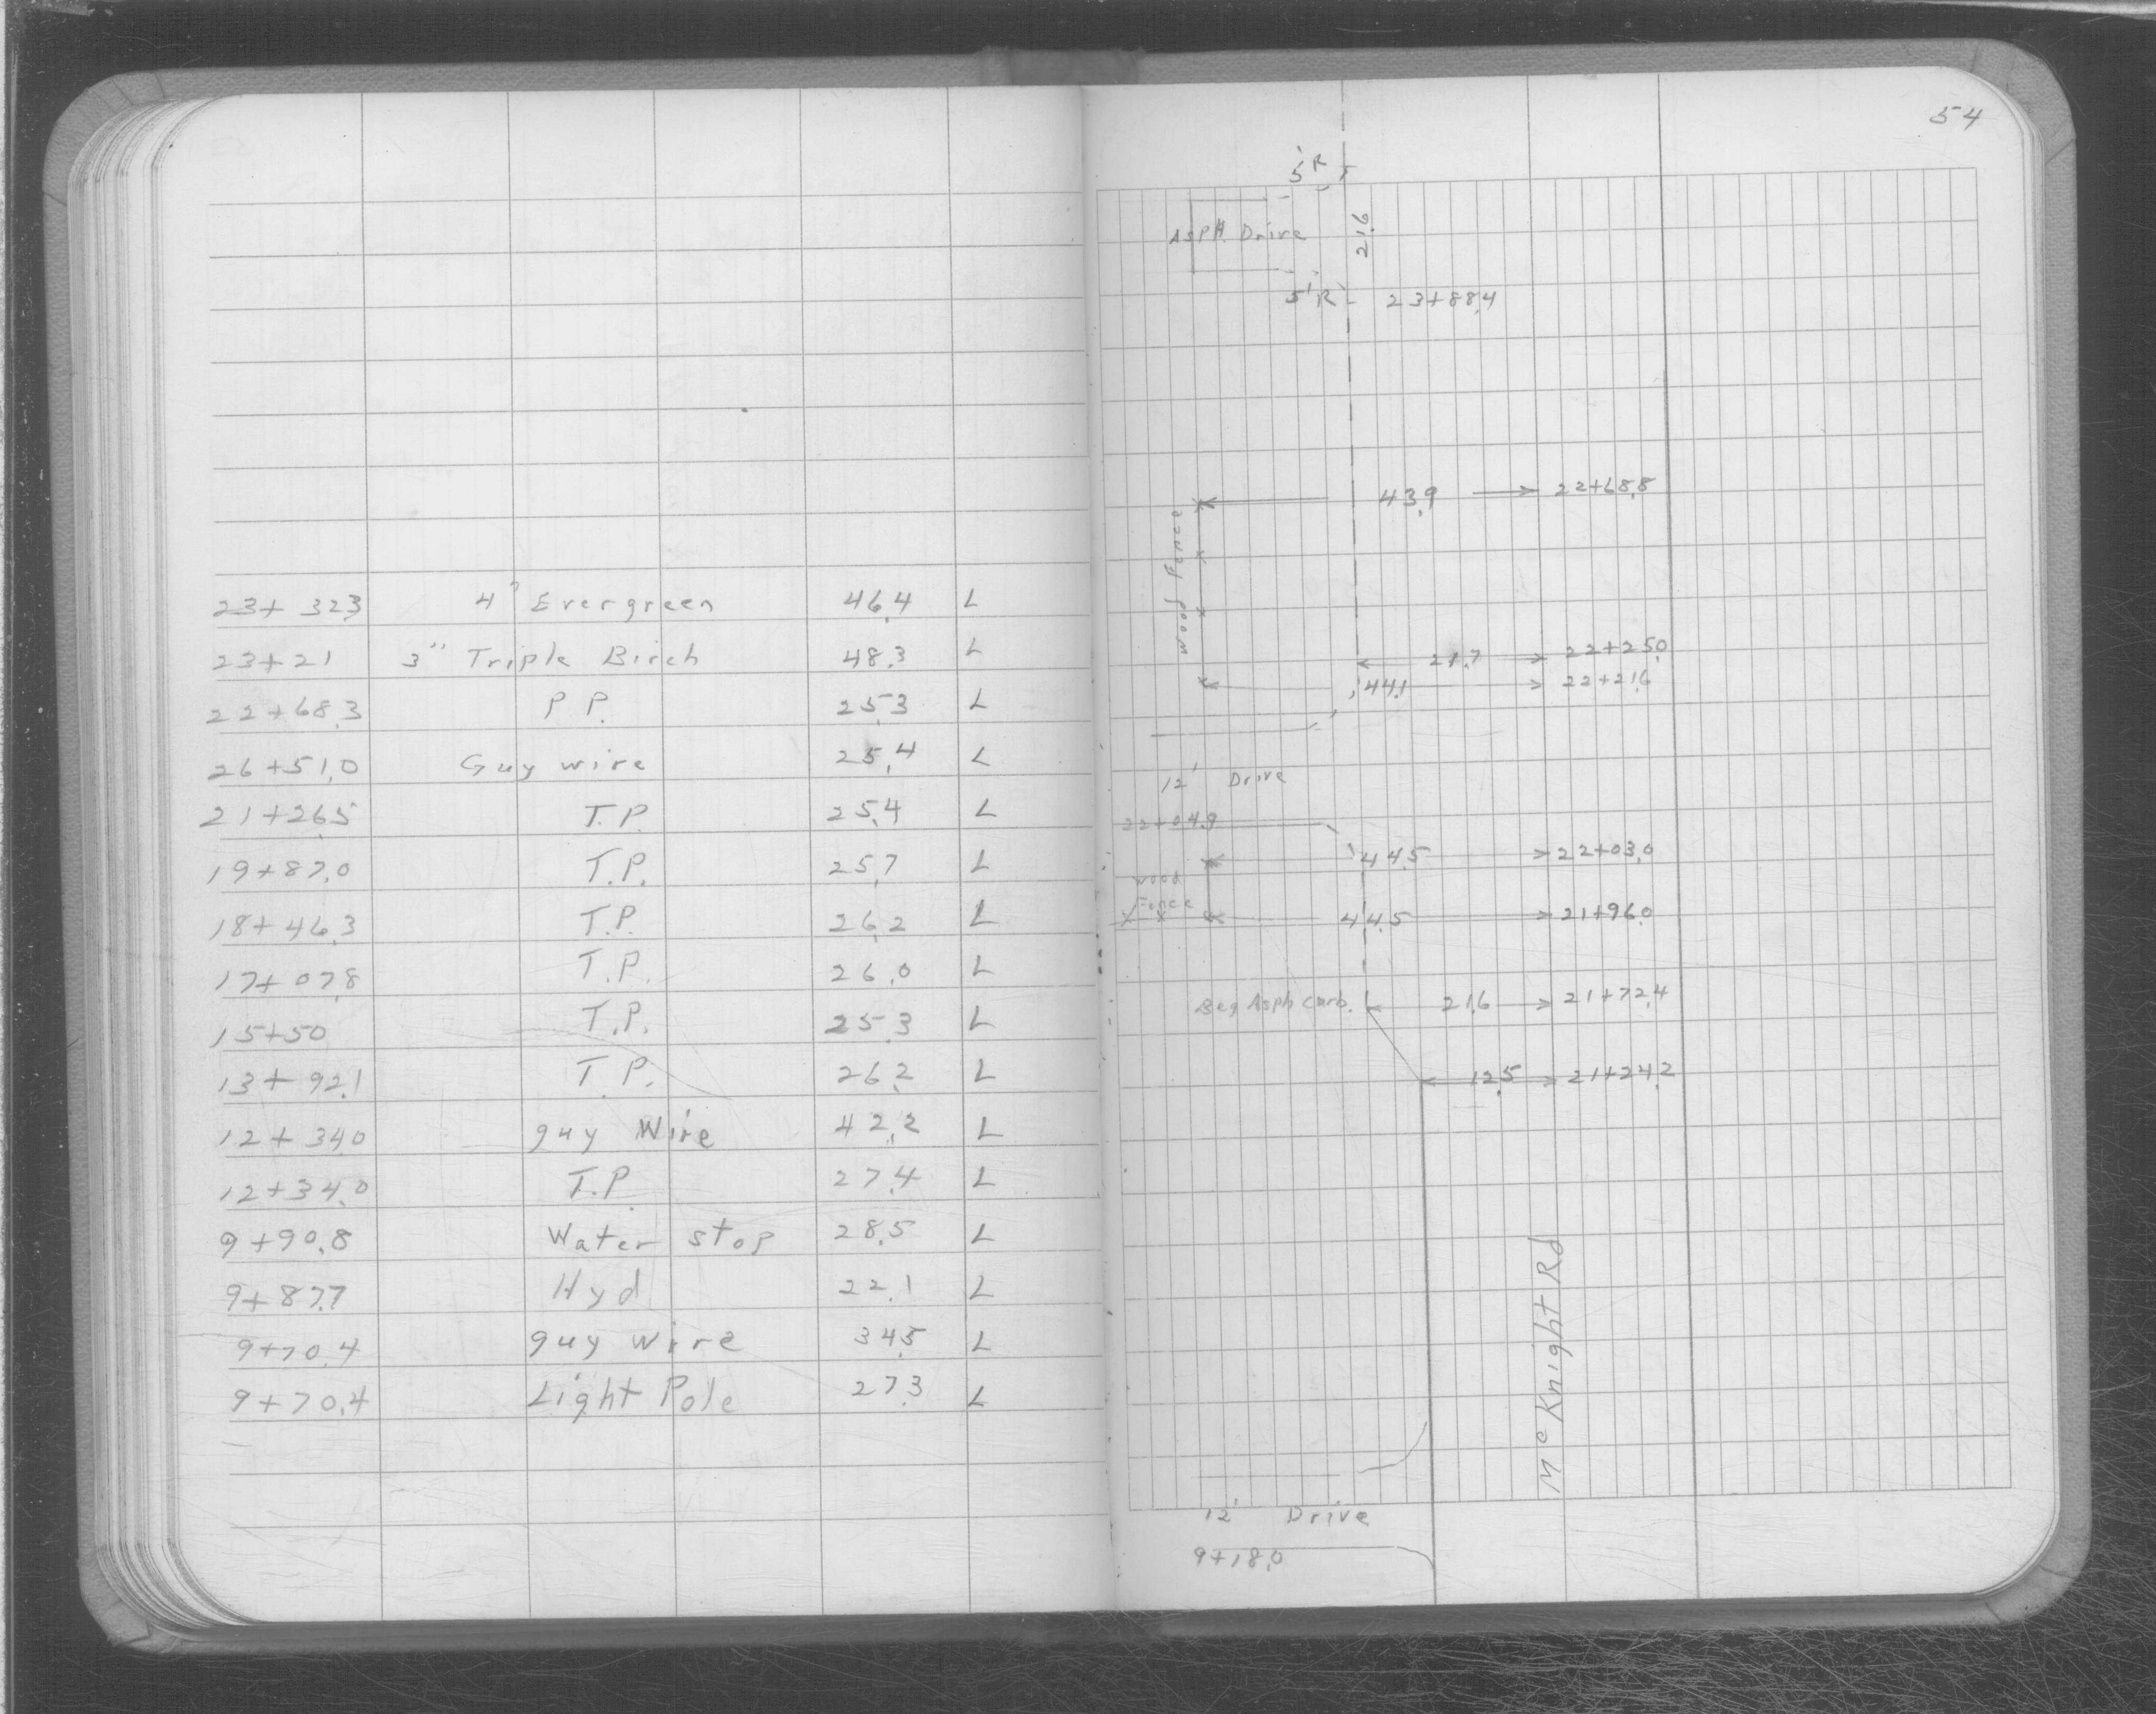 23+32.3 4" Evergreen 46.4 L
23+21 3" Triple Birch 48.3 L
22+68.3 P P. 25.3 L
26+51.0 Guy wire 25.4 L
21+26.5 T.P. 25.4 L
19+87.0 T.P. 25.7 L
18+46.3 T.P. 26.2 L
17+07.8 T.P. 26.0 L
15+50 T.P. 25.3 L
13+92.1 T.P. 26.2 L
12+34.0 guy Wire 42.2 L
12+34.0 T.P. 27.4 L
9+90.8 Water stop 28.5 L
9+87.7 Hyd 22.1 L
9+70.4 guy wire 34.5 L
9+70.4 Light Pole 27.3 L
54
5'R
Asph. Drive
21.6
5'R 23+88.4
43.9 22+68.8
Wood Fence
21.7 22+25.0
44.1 22+21.6
12' Drive
22+04.9
44.5 22+03.0
Wood
Fence
44.5 21+96.0
Beg Asph Curb. 21.6 21+72.4
12.5 21+24.2
Mc Knight Rd
12' Drive
9+18.0